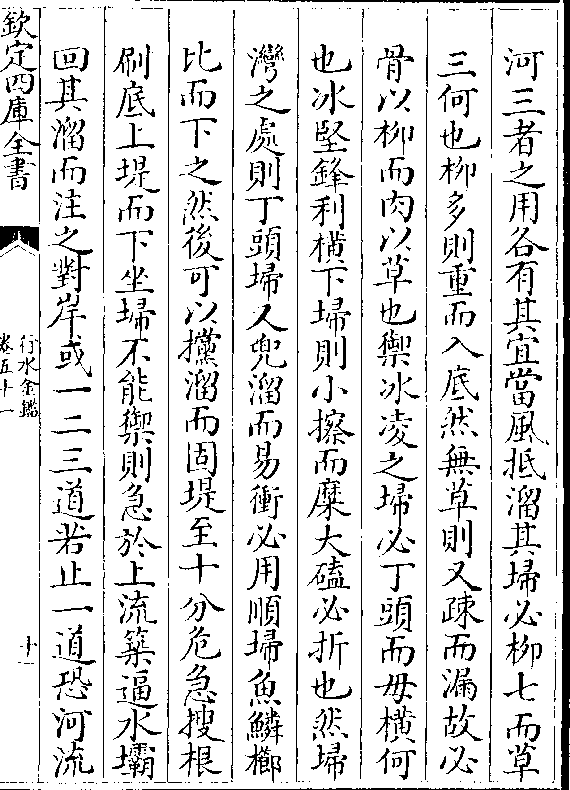 河三者之用各有其宜當風抵溜其埽必柳七而草
三何也柳多則重而入底然無草則又疎而漏故必
骨以柳而肉以草也禦冰凌之埽必丁頭而毋橫何
也冰堅鋒利橫下埽則小擦而糜大磕必折也然埽
灣之處則丁頭埽又兜溜而易衝必用順埽魚鱗櫛
比而下之然後可以攩溜而固堤至十分危急搜根
刷底上堤而下坐埽不能禦則急於上流築逼水壩
回其溜而注之對岸或一二三道若止一道恐河流
欽定四庫全書
行水金鑑
卷五十一
十一